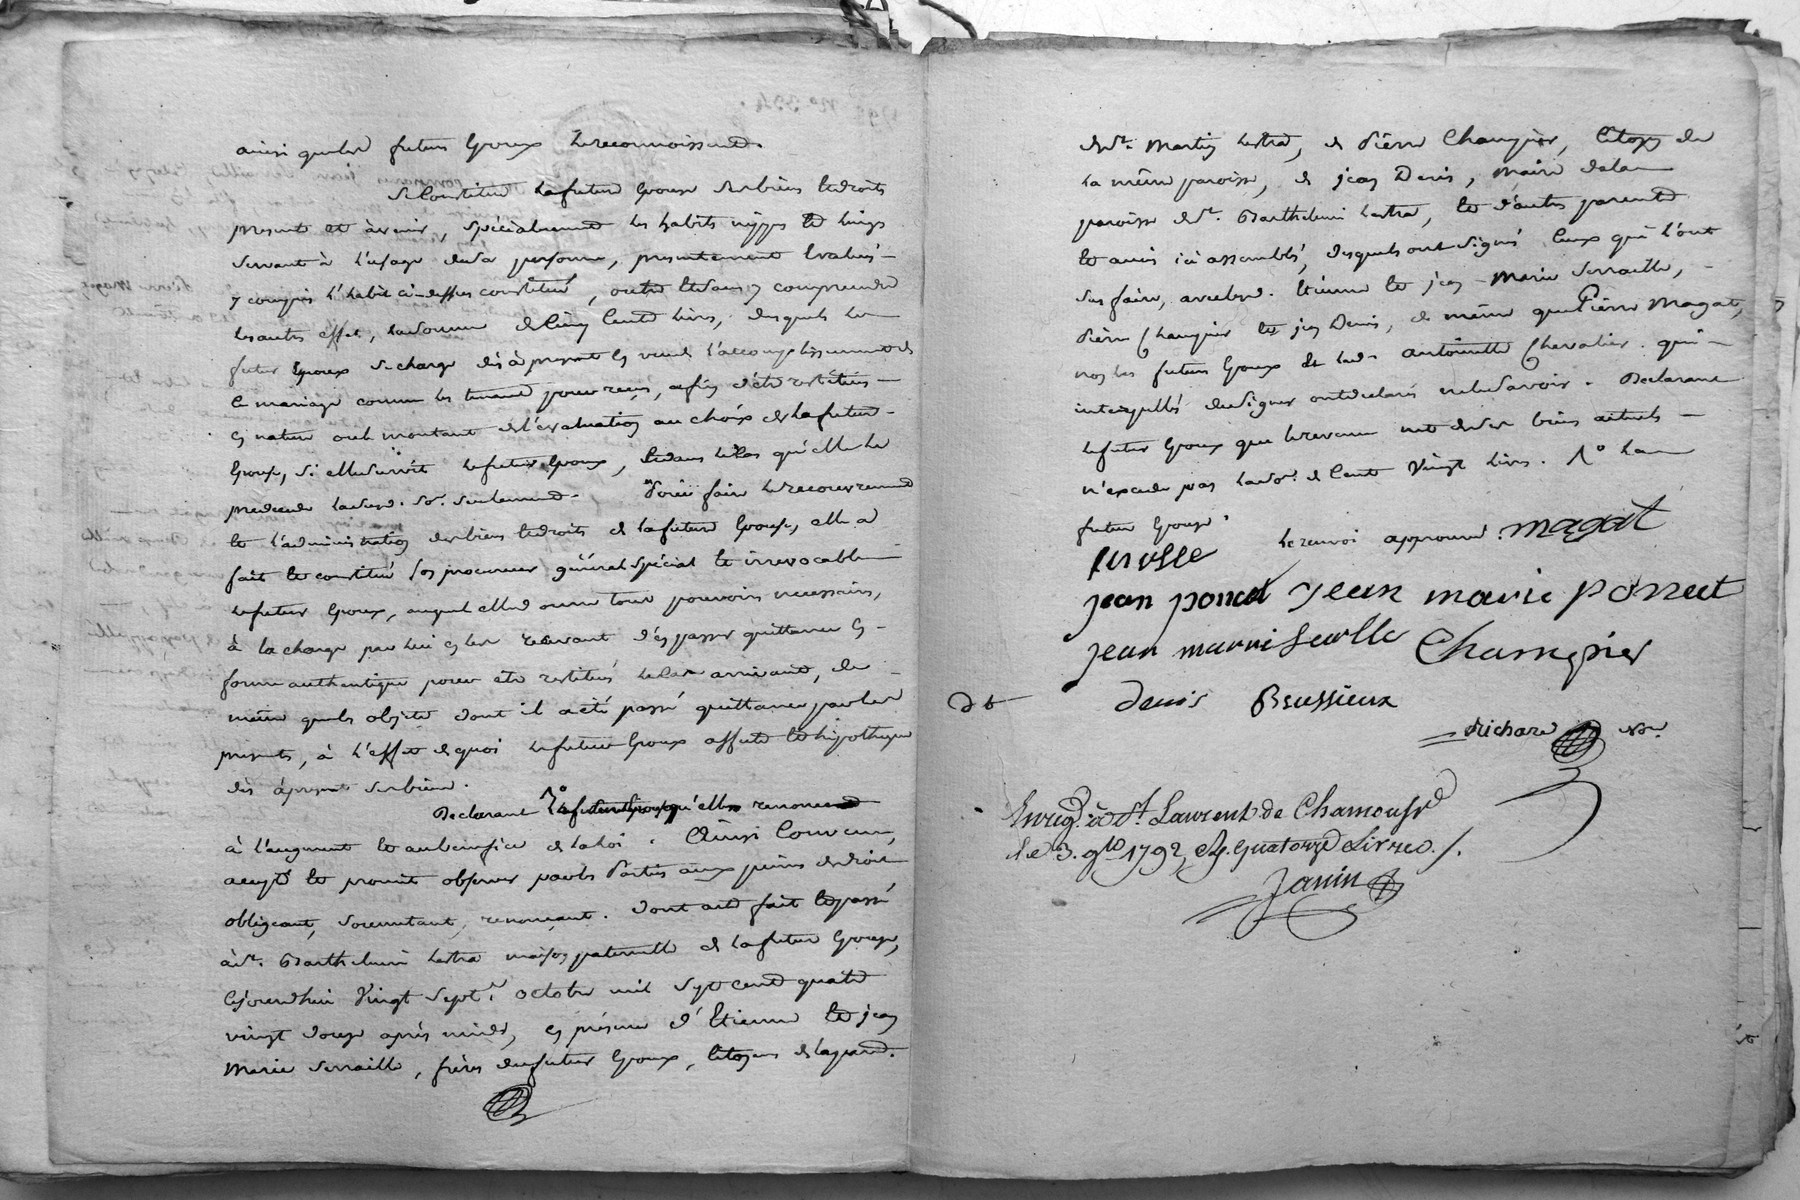 ainsi que les futurs Epoux le reconnoissent.
Se Constitue la future Epouse ses biens et droits
presents et avenir, spécialement les habits nippes et linges
servant à l'usage de sa personne, presentement évalués
y compris l'habit ci-dessus constitué, outre et sans y comprendre
les autres effets, la somme de Cinq Cents livres, desquels le
futur Epoux se charge dès à present en vertu l'accomplissement de
ce mariage comme les tenant pour reçus, afin d'être restitués
en nature ou le montant de l'évaluation au choix de la future
Epouse, si elle survit le futur Epoux, et dans le Cas qu'elle le
predecede lad. so. seulement. Pour faire le recouvrement
et l'administration des biens et droits de la future Epouse, elle a
fait et constitué son procureur général spécial et irrevocable
le futur Epoux, auquel elle donne tous pouvoirs necessaires,
à la charge par lui en les recevant d'en passer quittance en
forme authentique pour etre restitués le cas arrivant, de
même que les objets dont il a été passé quittance par les
presents, à l'effet de quoi le futur Epoux affecte et hypotheque
dès à present ses biens.
Declarant la future Epouse qu'elle renonce
à l'augment et au benefice de la loi. Ainsi Convenu,
accepté et promis observer par les Parties aux peines de droit
obligeant, soumettant, renonçant. Dont acte fait et passé
à St. Barthelemi Lestra maison paternelle de la future Epouse,
Cejourdhui Vingt Sept octobre mil Sept cent quatre
vingt douze après midi, en présence d'Etienne et jean
Marie Serraille, frères du futur Epoux, Citoyens de la par.
de St. Martin Lestra, de Pierre Champier, Citoyen de
la même paroisse, de jean Denis, Maire de la
paroisse de St. Barthelemi Lestra, et d'autres parents
et amis ici assemblés, desquels ont signé Ceux qui l'ont
su faire, avec led. Etienne et jean-Marie Serraille,
Pierre Champier et jean Denis, de même que Pierre Magat,
non les futurs Epoux et lad. antoinette Chevalier qui
interpellés de signer ont declaré ne le savoir. Declarant
le futur Epoux que le revenu net de ses biens actuels
n'excede pas la so. de Cent Vingt livres. 1° La
future Epouse.
le renvoi approuvé. magat
jean poncet jean marie poncet
jean marie Champier
denis Beussieux
Richard no.re
Enreg. à St. Laurent de Chamousset
le 3. 9bre 1792, R. quatorze Livres
Janin